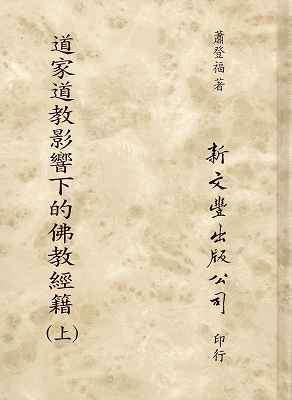 蕭登福著
新文豐出版公司印行
道家道教影響下的佛教經籍(上)